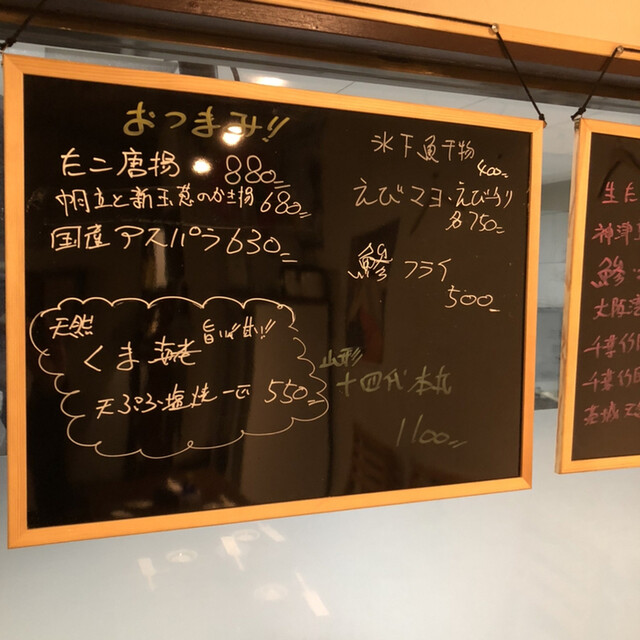 おつまみ!!
たこ唐揚 880-
帆立と新玉葱のかき揚 680-
国産アスパラ 630-
天然 旨いが甘い!!
くま海老
天ぷら塩焼一匹 550-
氷下魚干物
400-
えびマヨ・えびチリ
各750-
鯵フライ
500-
山形
十四代本丸
1100-
生た
神津
鯵
大阪
千葉竹
千葉竹